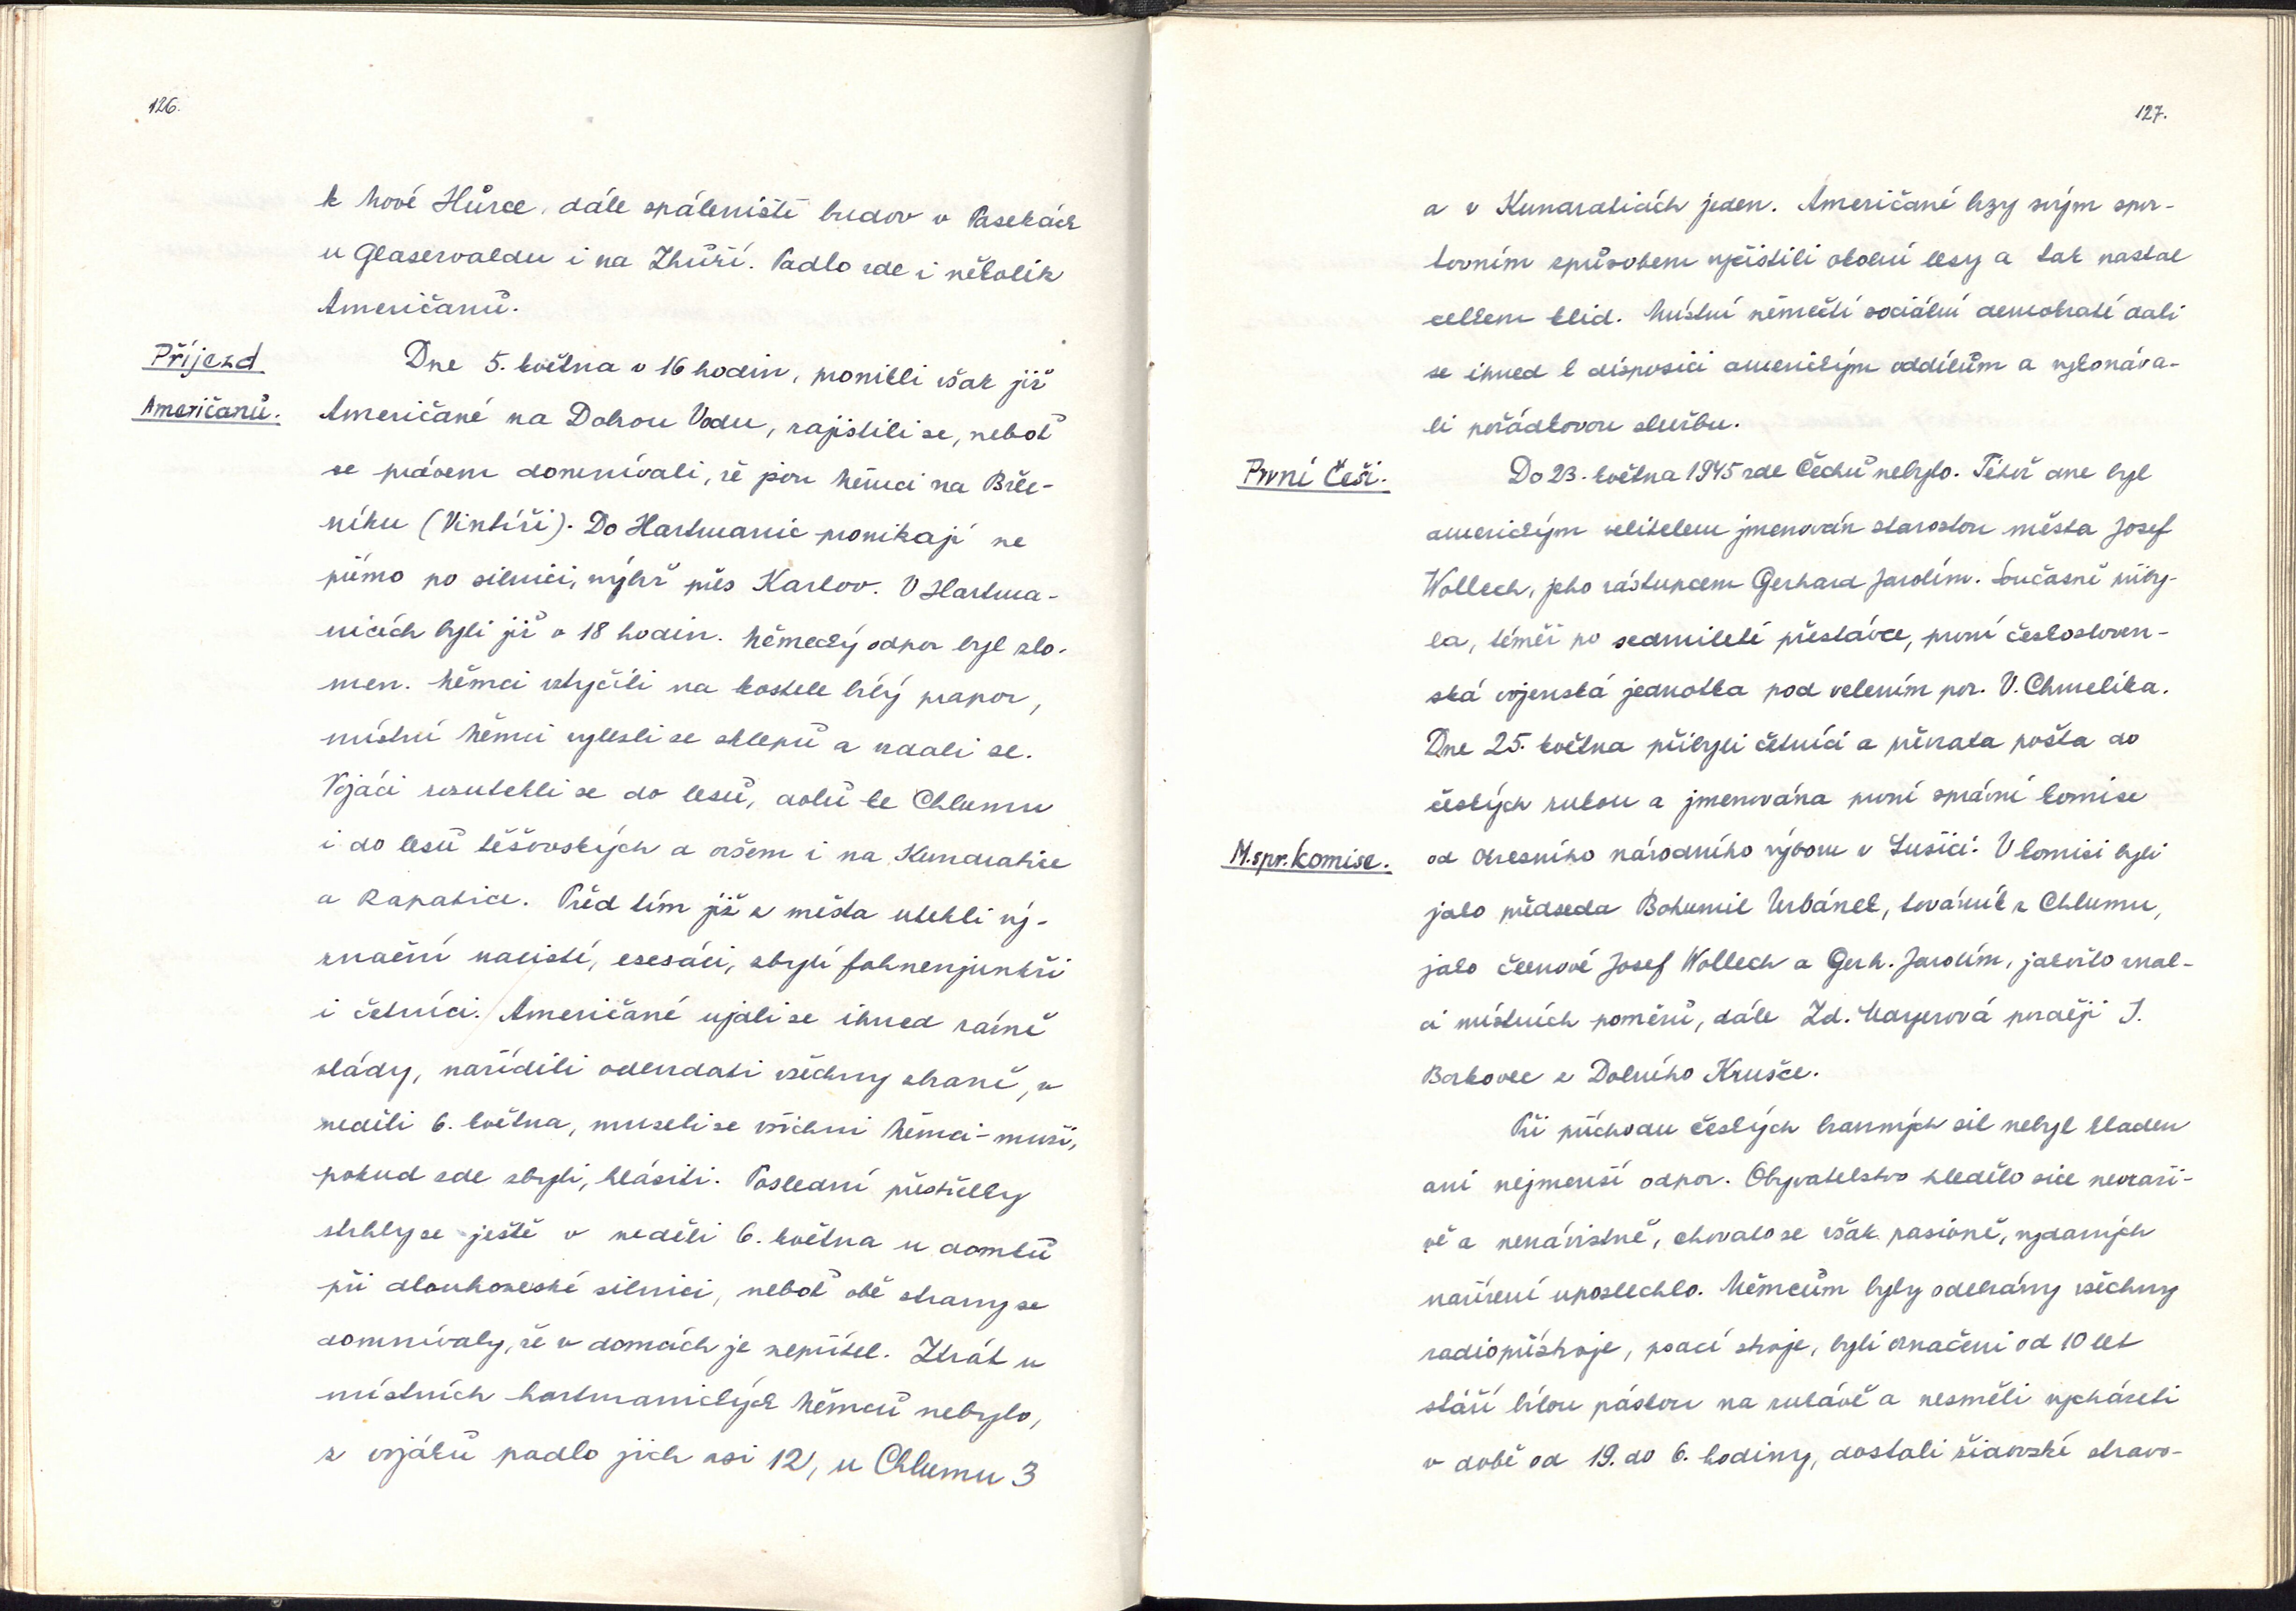 126.
k Nové Hůrce, dále spáleniště budov v Pasekách
u Glaserwaldu i na Zhůří. Padlo zde i několik
Američanů.
Příjezd
Američanů.
Dne 5. května v 16 hodin, pronikli však již
Američané na Dobrou Vodu, zajistili se, neboť
se právem domnívali, že jsou Němci na Břez-
níku (Vintíři). Do Hartmanic pronikají ne
přímo po silnici, nýbrž přes Karlov. V Hartma-
nicích byli již v 18 hodin. Německý odpor byl zlo-
men. Němci vztyčili na kostele bílý prapor,
místní Němci vylezli ze sklepů a vzdali se.
Vojáci rozutekli se do lesů, dolů ke Chlumu
i do lesů těšovských a ovšem i na Kundratice
a Rapatice. Před tím již z města utekli vý-
znační nacisté, esesáci, zbylí fahnenjunkři
i četníci. Američané ujali se ihned řádně
vlády, nařídili odevzdati všechny zbraně, v
neděli 6. května, museli se všichni Němci-muži,
pokud zde zbyli, hlásiti. Poslední přestřelky
strhly se ještě v neděli 6. května u domků
při dlouhoveské silnici, neboť obě strany se
domnívaly, že v domcích je nepřítel. Ztrát u
místních hartmanických Němců nebylo,
z vojáků padlo jich asi 12, u Chlumu 3
127.
a v Kundraticích jeden. Američané brzy svým spor-
tovním způsobem vyčistili okolní lesy a tak nastal
celkem klid. Místní němečtí sociální demokraté dali
se ihned k disposici americkým oddílům a vykonáva-
li pořádkovou službu.
První Češi.
Do 23. května 1945 zde Čechů nebylo. Téhož dne byl
americkým velitelem jmenován starostou města Josef
Wollech, jeho zástupcem Gerhard Jarolím. Současně přiby-
la, téměř po sedmileté přestávce, první českosloven-
ská vojenská jednotka pod velením por. V. Chmelíka.
Dne 25. května přibyli četníci a převzata pošta do
českých rukou a jmenována první správní komise
M. spr. komise.
od Okresního národního výboru v Sušici. V komisi byli
jako předseda Bohumil Urbánek, továrník z Chlumu,
jako členové Josef Wollech a Gerh. Jarolím, jakožto znal-
ci místních poměrů, dále Zd. Mayerová později J.
Borkovec z Dolního Krušce.
Při příchodu českých branných sil nebyl kladen
ani nejmenší odpor. Obyvatelstvo hledělo sice nevraži-
vě a nenávistně, chovalo se však pasivně, vydaných
nařízení uposlechlo. Němcům byly odebrány všechny
radiopřístroje, psací stroje, byli označeni od 10 let
stáří bílou páskou na rukávě a nesměli vycházeti
v době od 19. do 6. hodiny, dostali židovské stravo-